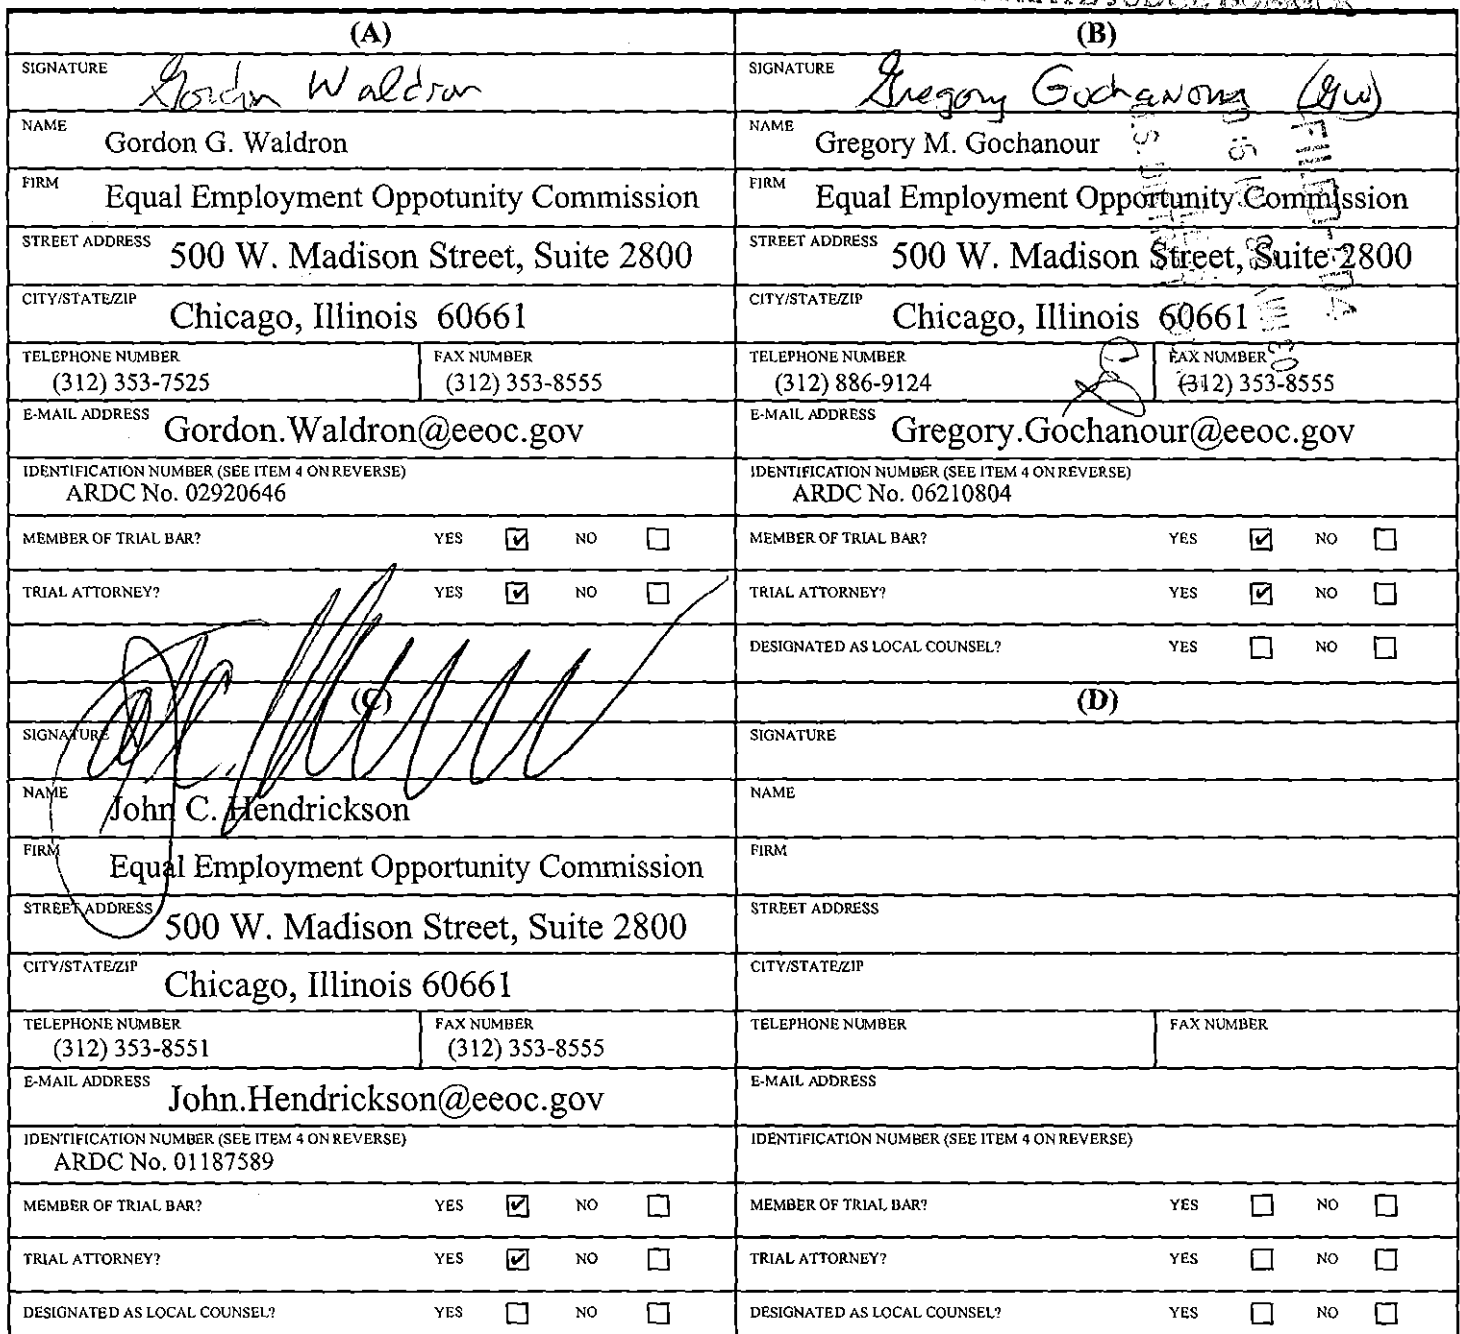 (A)
SIGNATURE Gordon Waldron
NAME
Gordon G. Waldron
FIRM Equal Employment Oppotunity Commission
STREET ADDRESS 500 W. Madison Street, Suite 2800
CITY/STATE/ZIP Chicago, Illinois 60661
TELEPHONE NUMBER FAX NUMBER
(312) 353-7525 (312) 353-8555
E-MAIL ADDRESS Gordon.Waldron@eeoc.gov
IDENTIFICATION NUMBER (SEE ITEM 4 ON REVERSE)
ARDC No. 02920646
MEMBER OF TRIAL BAR? YES ☑ NO ☐
TRIAL ATTORNEY? YES ☑ NO ☐
(B)
SIGNATURE Gregory Gochanour (GW)
NAME
Gregory M. Gochanour
FIRM Equal Employment Opportunity Commission
STREET ADDRESS 500 W. Madison Street, Suite 2800
CITY/STATE/ZIP Chicago, Illinois 60661
TELEPHONE NUMBER FAX NUMBER
(312) 886-9124 (312) 353-8555
E-MAIL ADDRESS Gregory.Gochanour@eeoc.gov
IDENTIFICATION NUMBER (SEE ITEM 4 ON REVERSE)
ARDC No. 06210804
MEMBER OF TRIAL BAR? YES ☑ NO ☐
TRIAL ATTORNEY? YES ☑ NO ☐
DESIGNATED AS LOCAL COUNSEL? YES ☐ NO ☐
(C)
SIGNATURE
NAME
John C. Hendrickson
FIRM
Equal Employment Opportunity Commission
STREET ADDRESS 500 W. Madison Street, Suite 2800
CITY/STATE/ZIP Chicago, Illinois 60661
TELEPHONE NUMBER FAX NUMBER
(312) 353-8551 (312) 353-8555
E-MAIL ADDRESS John.Hendrickson@eeoc.gov
IDENTIFICATION NUMBER (SEE ITEM 4 ON REVERSE)
ARDC No. 01187589
MEMBER OF TRIAL BAR? YES ☑ NO ☐
TRIAL ATTORNEY? YES ☑ NO ☐
DESIGNATED AS LOCAL COUNSEL? YES ☐ NO ☐
(D)
SIGNATURE
NAME
FIRM
STREET ADDRESS
CITY/STATE/ZIP
TELEPHONE NUMBER FAX NUMBER
E-MAIL ADDRESS
IDENTIFICATION NUMBER (SEE ITEM 4 ON REVERSE)
MEMBER OF TRIAL BAR? YES ☐ NO ☐
TRIAL ATTORNEY? YES ☐ NO ☐
DESIGNATED AS LOCAL COUNSEL? YES ☐ NO ☐